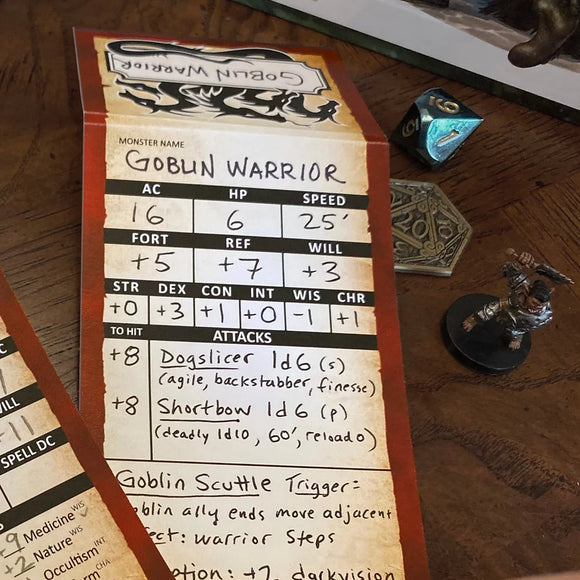 GOBLIN WARRIOR
MONSTER NAME
GOBLIN WARRIOR
AC HP SPEED
16 6 25'
FORT REF WILL
+5 +7 +3
STR DEX CON INT WIS CHR
+0 +3 +1 +0 -1 +1
TO HIT ATTACKS
+8 Dogslicer 1d6 (s)
(agile, backstabber, finesse)
+8 Shortbow 1d6 (p)
(deadly 1d10, 60', reload 0)
Goblin Scuttle Trigger=
ally ends move adjacent
: Warrior Steps
: +2, darkvision
+11
SPELL DC
Medicine WIS
+2 Nature WIS
Occultism INT
CHA